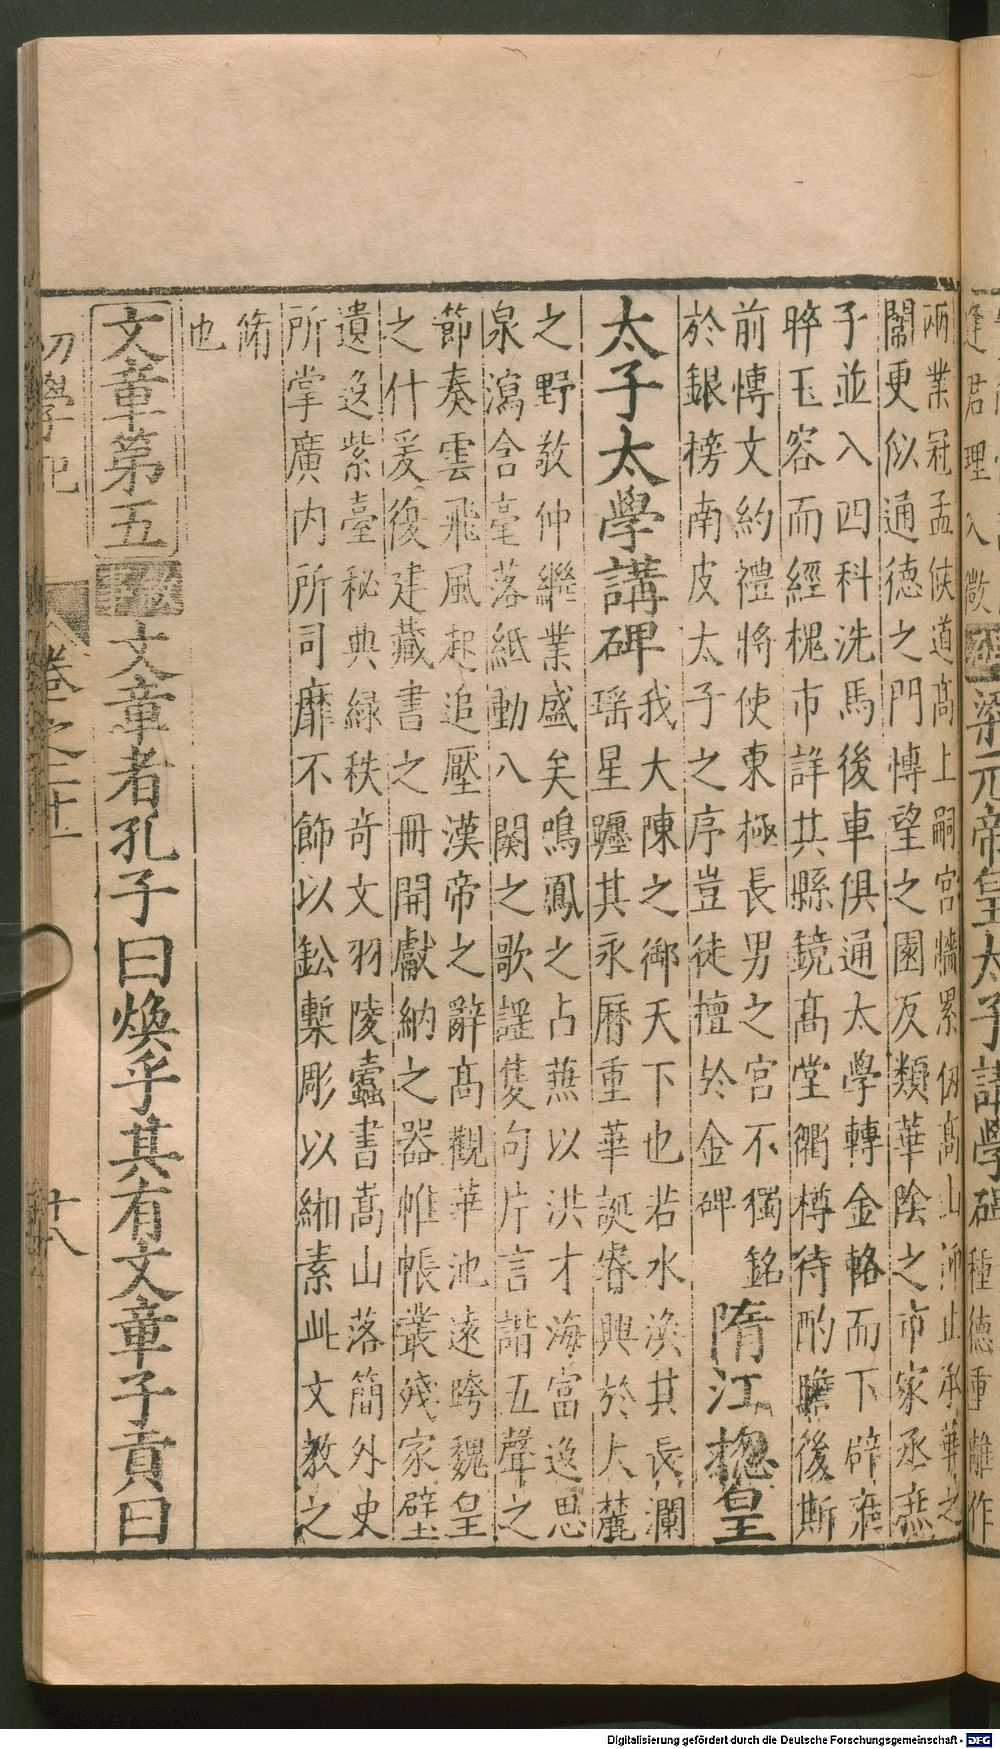 逢君理入微
梁元帝皇太子講學碑
種德重離作
兩業冠孟俠道高上嗣宮牆累仞高山
止承華之
闈更似通德之門博望之園反類華陰之市家丞庶
子並入四科洗馬後車俱通太學轉金輅而下辟雍
睟玉容而經槐市詳其縣鏡高堂衢樽待酌瞻後斯
前慱文約禮將使東極長男之宮不獨銘
於銀榜南皮太子之序豈徒擅於金碑
隋江揔皇
太子太學講碑
我大陳之御天下也若水渙其長瀾
瑶星躔其永曆重華誕睿興於大麓
之野敬仲繼業盛矣鳴鳳之占蕪以洪才海富逸思
泉瀉含毫落紙動八闋之歌謡隻句片言諧五聲之
節奏雲飛風起追壓漢帝之辭高觀華池遠跨魏皇
之什爰復建藏書之冊開獻納之器帷帳叢殘家壁
遺逸紫臺秘典緑秩奇文羽陵蠹書嵩山落簡外史
所掌廣内所司靡不飾以鈆槧彫以緗素此文教之
脩
也
文章第五
文章者孔子曰煥乎其有文章子貢曰
初學記
卷之二十一
十八
Digitalisierung gefördert durch die Deutsche Forschungsgemeinschaft - DFG